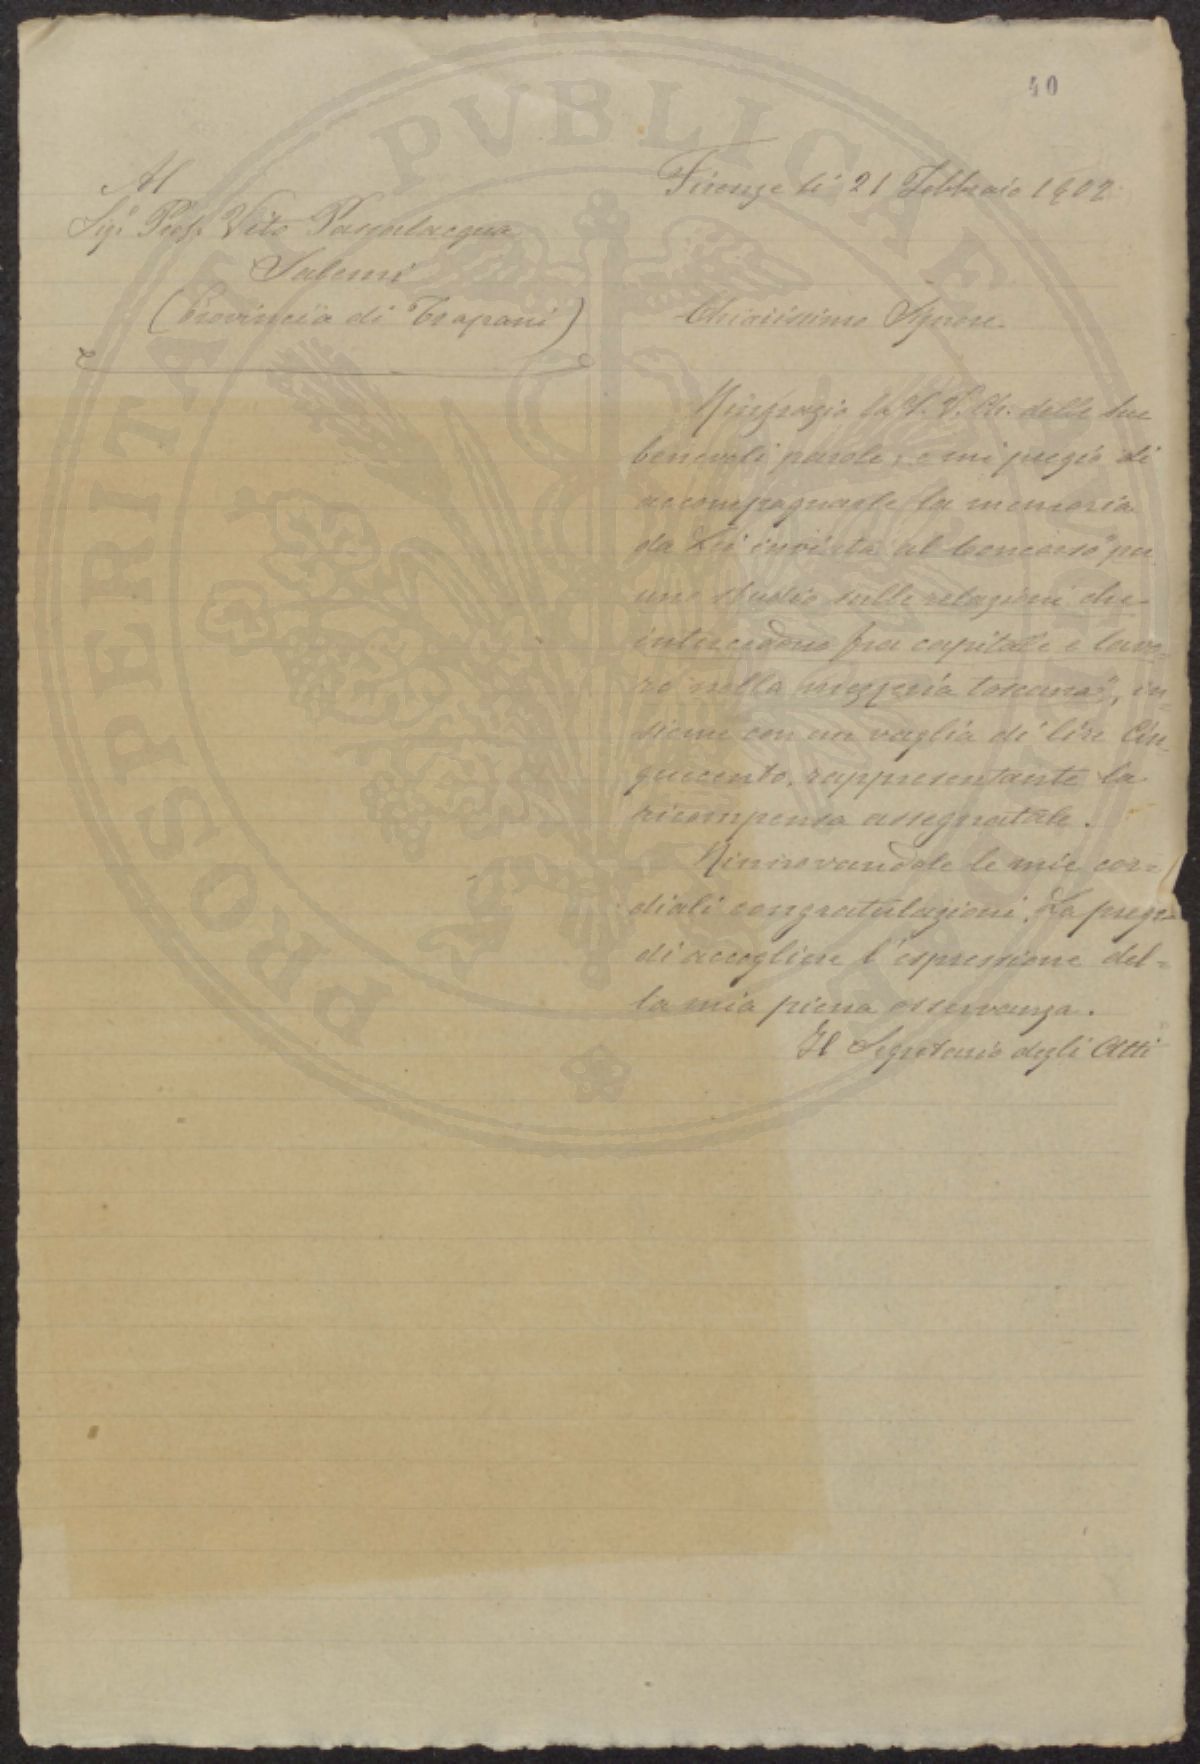 40
Firenze li 21 Febbraio 1902.
Al
Sigr. Prof. Vito
Salemi
(Provincia di Trapani)
Chiarissimo Signore.
Ringrazio la S. V. Ch. delle sue
benevoli parole, e mi pregio di
accompagnarle la memoria
da Lei inviata al Concorso "per
uno studio sulle relazioni che
intercedono fra capitale e lavo=
ro nella mezzeria toscana", in=
sieme con un vaglia di lire Cin=
quecento, rappresentante la
ricompensa assegnatale.
Rinnovandole le mie cor=
diali congratulazioni, La prego
di accogliere l'espressione del=
la mia piena osservanza.
Il Segretario degli Atti
PROSPERITATI PVBLICAE